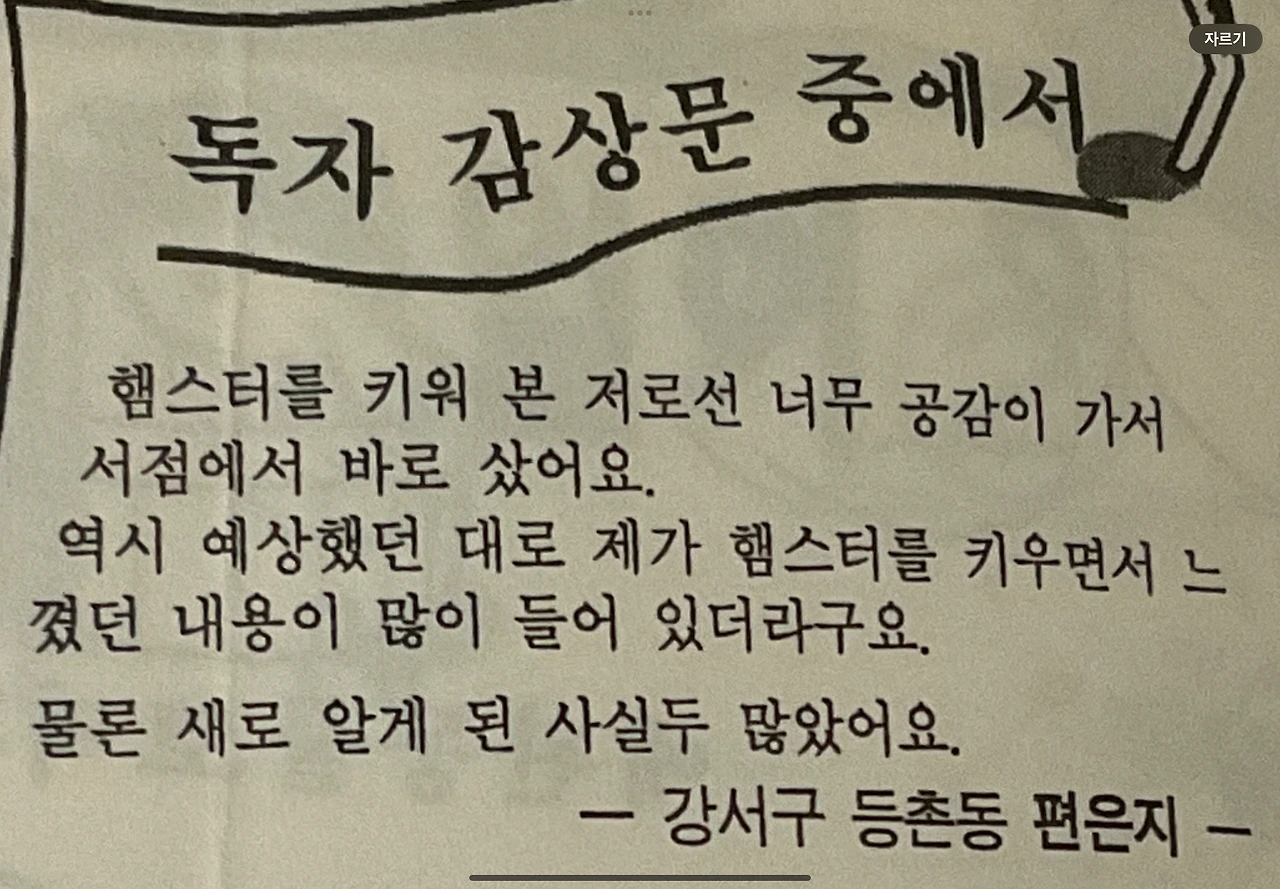 자르기
독자 감상문 중에서
햄스터를 키워 본 저로선 너무 공감이 가서
서점에서 바로 샀어요.
역시 예상했던 대로 제가 햄스터를 키우면서 느
꼈던 내용이 많이 들어 있더라구요.
물론 새로 알게 된 사실두 많았어요.
— 강서구 등촌동 편은지 —